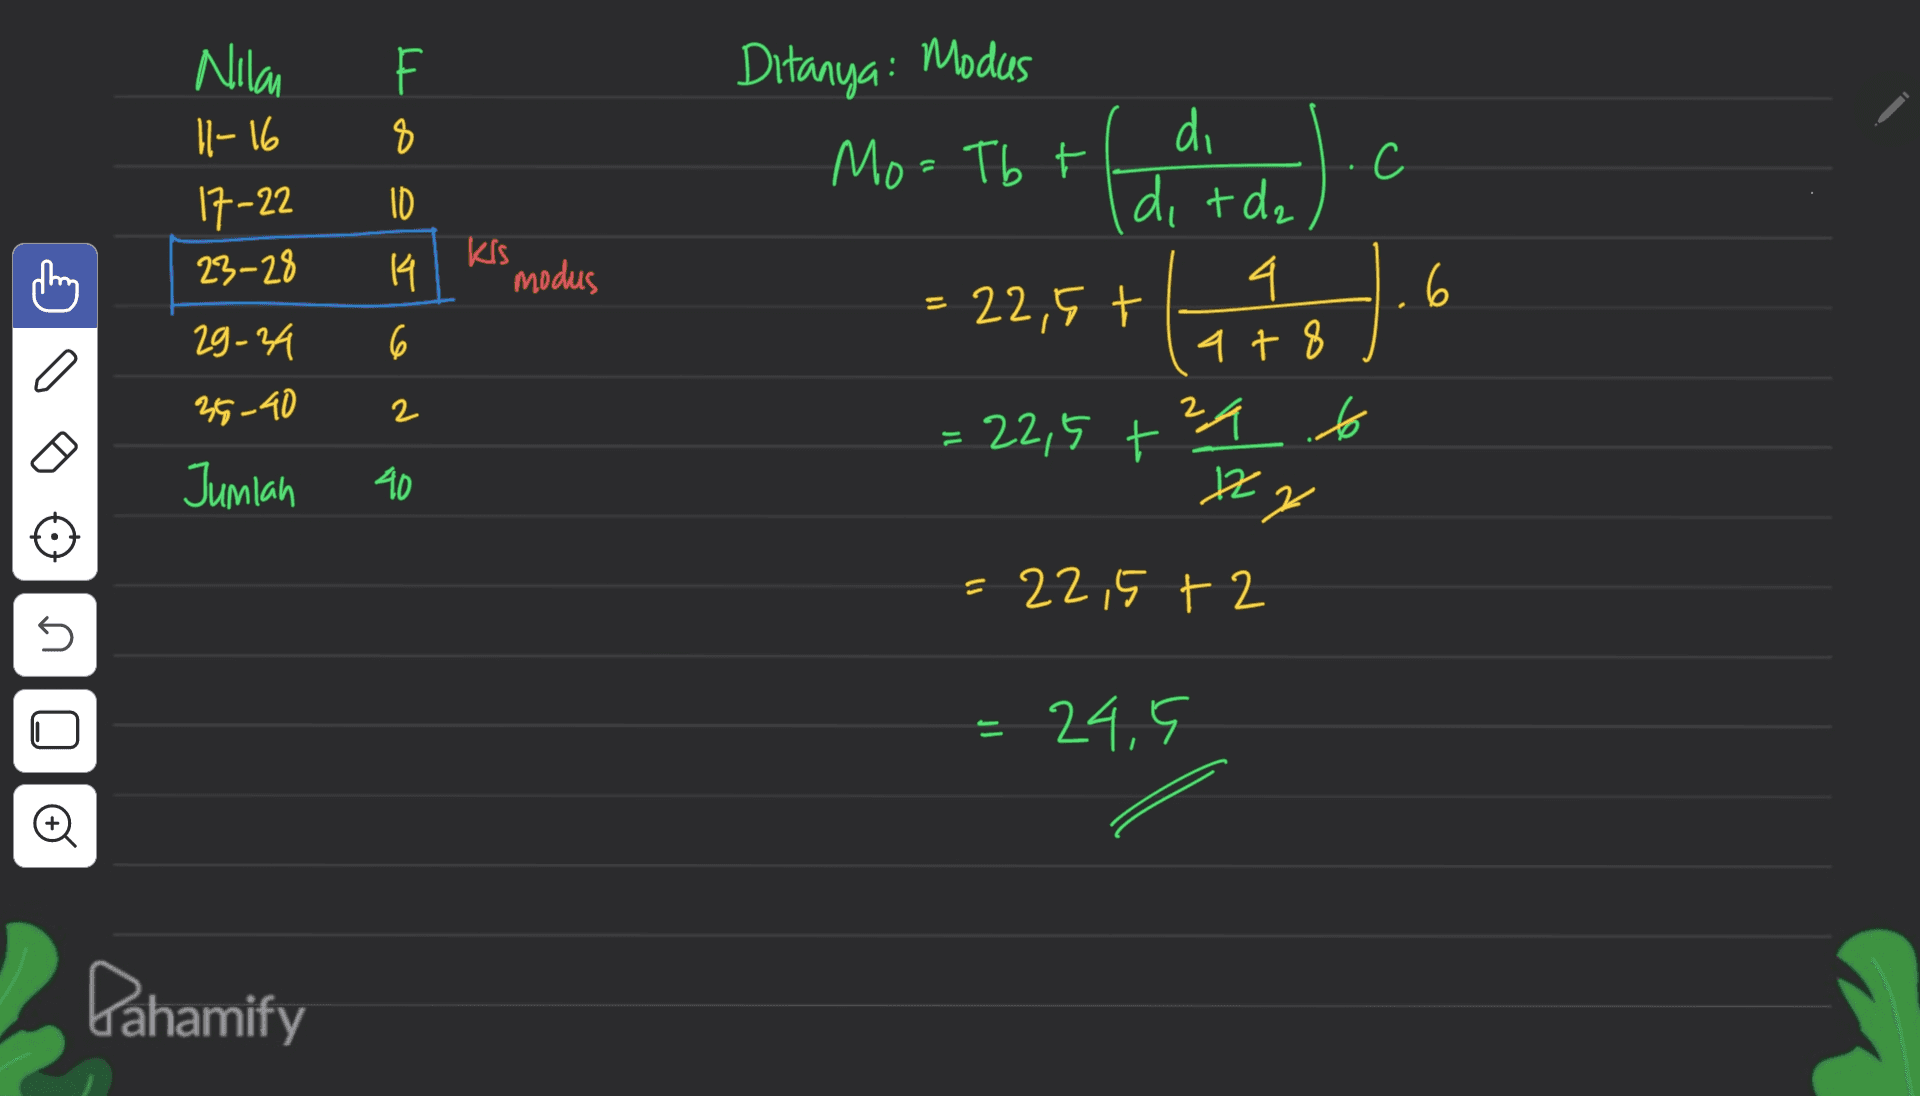 Nilai F
11-16 8
17-22 10
23-28 14 kls modus
29-34 6
35-40 2
Jumlah 40
Ditanya: Modus
Mo = Tb + (d₁ / (d₁ + d₂)) . C
= 22,5 + (4 / (4 + 8)) . 6
= 22,5 + ²4 / 12 2 . 6
= 22,5 + 2
= 24,5
Pahamify